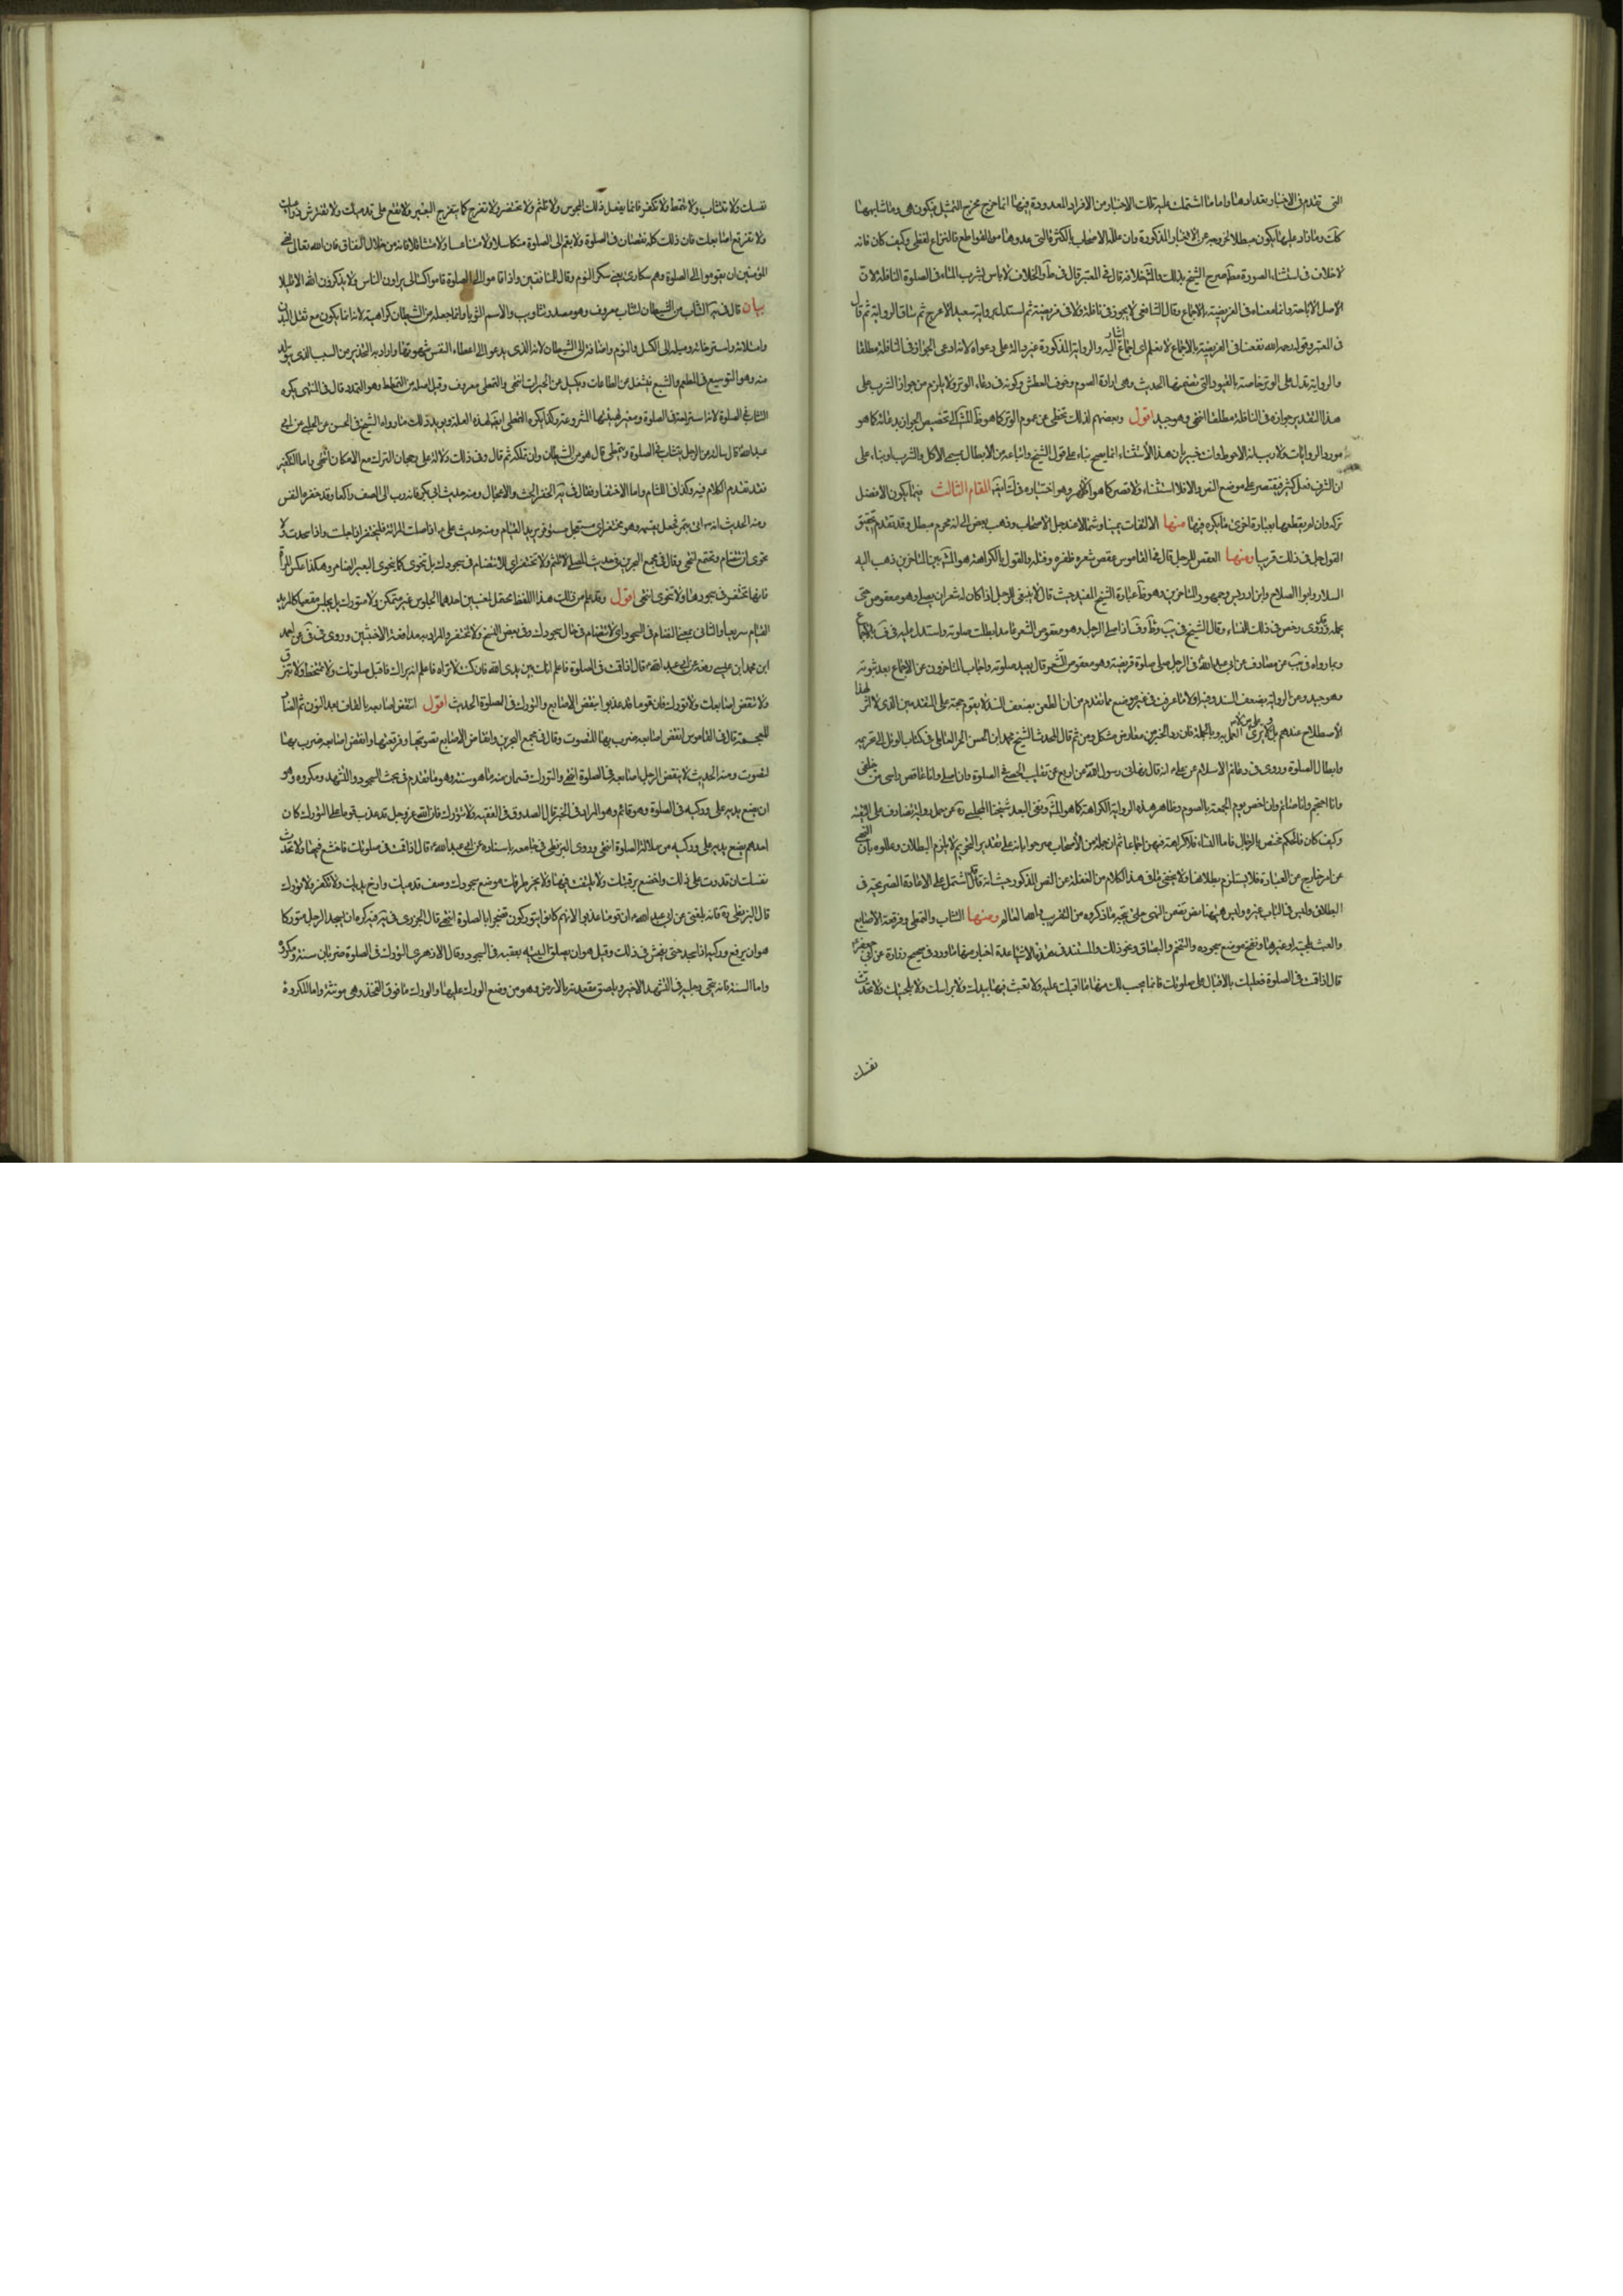 التى تقدم فى الاخبار بقدارها واما ما اشتملت عليه تلك الاخبار من الافراد المعدودة فيها انما خرج مخرج التمثيل فيكون هى وما شابهها
كك وما زاد عليها يكون مبطلا لخروجه عن الاخبار المذكورة وان
لا خلاف فى استثناء الصورة صرح الشيخ بذلك قال فى المعتبر قال فى ط والخلاف لا باس بشرب الماء فى الصلوة النافلة لان
الاصل الاباحة وانما منعناه فى الفريضة بالاجماع وقال الشافعى لا يجوز فى نافلة ولا فى فريضة ثم استدل برواية سعيد الاعرج ثم قال
فى المعتبر وقوله رحمه الله منعنا فى الفريضة بالاجماع لا نعلم اى اجماع اشار اليه والرواية المذكورة غير دالة على دعواه لانه ادعى الجواز فى النافلة مطلقا
والرواية تدل على الوتر خاصة بالقيود التى تضمنها الحديث وهى ارادة الصوم وخوف العطش وكونه فى دعاء الوتر ولا يلزم من جواز الشرب على
هذا التقدير جوازه فى النافلة مطلقا انتهى وهو جيد اقول وبعضهم لذلك تخطى عن عموم الوتر كما هو
مورد الروايات ولا ريب انه الاحوط وانت خبير بان هذا الاستثناء انما يصح بناء على قول الشيخ واتباعه من الابطال بمسمى الاكل والشرب او بناء على
ان الشرب فعل كثير فيقتصر على موضع النص والا فلا استثناء المقام الثالث فيما يكون الافضل
تركه وان لم يقطعها بعبارة اخرى ما يكره فيها منها الالتفات يمينا وشمالا عند جل الاصحاب وذهب بعض الى انه محرم مبطل وقد تقدم تحقيق
القول فى ذلك قريبا ومنها العقص للرجل قال فى القاموس عقص شعره ظفره وفتله والقول بالكراهة هو المشهور بين المتاخرين ذهب اليه
السلار وابو الصلاح وابن ادريس وجمهور المتاخرين وهو عبارة الشيخ المفيد حيث قال لا ينبغى للرجل اذا كان له شعر ان يصلى وهو معقوص حتى
يحله وقد روى رخص فى ذلك للنساء وقال الشيخ فى يب وط وف اذا صلى الرجل وهو معقوص الشعر عامدا بطلت صلوته واستدل عليه فى ف بالاجماع
وبما رواه فى يب عن مصادف عن ابى عبد الله فى الرجل صلى صلوة فريضة وهو معقوص الشعر قال يعيد صلوته واجاب المتاخرون عن الاجماع بعد ثبوته
وهو جيد وعن الرواية بضعف السند وفيه اولا ما عرفت فى غير موضع مما تقدم من ان الطعن بضعف السند لا يقوم حجة على المتقدمين الذى لا اثر لهذا
الاصطلاح عندهم وبالجملة فان رد الخبر من معارض مشكل ومن ثم قال المحدث الشيخ محمد ابن الحسن الحر العاملى فى كتاب الوسائل الى تحريمه
وابطال الصلوة وروى فى دعائم الاسلام عن على انه قال نهانى رسول الله عن اربع عن تقليب الحصى فى الصلوة وان اصلى وانا عاقص راسى من خلفى
وانا احتجم وانا صائم وان اخص يوم الجمعة بالصوم وظاهر هذه الرواية الكراهة كما هو المشهور ونفى البعد شيخنا المجلسى عن حمل رواية مصادف على التقية
وكيف كان فالحكم مختص بالرجال فاما النساء فلا كراهة فيهن اجماعا ثم ان جملة من الاصحاب صرحوا بانه على تقدير التحريم لا يلزم البطلان وعللوه بان النهى
عن امر خارج عن العبادة فلا يستلزم بطلانها ولا يخفى ما فى هذا الكلام من الغفلة عن النص المذكور حيث انه قد اشتمل على الاعادة الصريحة فى
البطلان وليس فى الباب غيره وليس ههنا نص تضمن النهى حتى يتجه ما ذكروه من التقريب والله العالم ومنها التثاب والتمطى وفرقعة الاصابع
والعبث بلحيته او غيرها ونفخ موضع سجوده والتنخم والبصاق ونحو ذلك والمستند فى هذه الاشياء عدة اخبار منها ما ورد فى صحيح زرارة عن ابى جعفر
قال اذا قمت فى الصلوة فعليك بالاقبال على صلوتك فانما يحسب لك منها ما اقبلت عليه ولا تعبث فيها بيدك ولا براسك ولا بلحيتك ولا تحدث
نفسك
نفسك ولا تتثاب ولا تتمط ولا تكفر فانما يفعل ذلك المجوس ولا تلثم ولا تحتفز ولا تفرج كما يتفرج البعير ولا تقع على قدميك ولا تفترش ذراعيك
ولا تفرقع اصابعك فان ذلك كله نقصان فى الصلوة ولا تقم الى الصلوة متكاسلا ولا متناعسا ولا متثاقلا فانه من خلال النفاق فان الله تعالى نهى
المؤمنين ان يقوموا الى الصلوة وهم سكارى يعنى سكر النوم وقال للمنافقين واذا قاموا الى الصلوة قاموا كسالى يراون الناس ولا يذكرون الله الا قليلا
بيان قال فى يه التثاب من الشيطان التثاب معروف وهو مصدر تثاوبت والاسم الثوباء وانما جعله من الشيطان كراهية له لانه انما يكون مع ثقل البدن
وامتلائه واسترخائه وميله الى الكسل والنوم واضافه الى الشيطان لانه الذى يدعو الى اعطاء النفس شهوتها واراد به التحذير من السبب الذى يتولد
منه وهو التوسع فى المطعم والشبع فيثقل عن الطاعات ويكسل عن الخيرات انتهى والتمطى معروف وقيل اصله من التمطط وهو التمدد قال فى المنتهى يكره
التثاب فى الصلوة لانه استراحة فى الصلوة ومغير لهيئتها المشروعة وكذا يكره التمطى ايضا لهذه العلة ويؤيد ذلك ما رواه الشيخ فى الحسن عن الحلبى عن ابى
عبد الله قال سالته عن الرجل يتثاب فى الصلوة ويتمطى قال هو من الشيطان ولن تملكه ثم قال وفى ذلك دلالة على رجحان الترك مع الامكان انتهى واما التكفير
فقد تقدم الكلام فيه وكذا فى اللثام واما الاحتفاز فقال فى يه الحفز الحث والاعجال ومنه حديث ابى بكرة انه دب الى الصف راكعا وقد حفزه النفس
ومنه الحديث انه اتى بتمر فجعل يقسمه وهو محتفز اى مستعجل مستوفز يريد القيام ومنه حديث على اذا صلت المراة فلتحتفز اذا جلست واذا سجدت ولا
تخوى اى تتضام وتجتمع انتهى وقال فى مجمع البحرين فى حديث المصلى لا تلثم ولا تحتفز اى لا تتضام فى سجودك بل تخوى كما يخوى البعير الضامر وهكذا عكس المراة
فانها تحتفز فى سجودها ولا تخوى انتهى اقول وقد علم من ذلك ان هذا اللفظ محتمل لمعنيين احدهما الجلوس غير متمكن ولا متورك بل يجلس مقعيا كالمريد
القيام سريعا والثانى بمعنى التضام فى السجود اى لا تتضام فى حال سجودك وفى بعض النسخ ولا تحتقن والمراد به مدافعة الاخبثين وروى فى فى عن احمد
ابن محمد ابن عيسى رفعه عن ابى عبد الله قال اذا قمت فى الصلوة فاعلم انك بين يدى الله فان كنت لا تراه فاعلم انه يراك فاقبل صلوتك ولا تمتخط ولا تبزق
ولا تنقض اصابعك ولا تورك فان قوما قد عذبوا بنقض الاصابع والتورك فى الصلوة الحديث اقول انتقض اصابعه بالقاف بعد النون ثم الضاد
المعجمة قال فى القاموس انقض اصابعه ضرب بها لتصوت وقال فى مجمع البحرين وانقاض الاصابع تصويتها وفرقعتها وانقض اصابعه ضرب بها
لتصوت ومنه الحديث لا ينقض الرجل اصابعه فى الصلوة انتهى والتورك قسمان منه ما هو سنة وهو ما تقدم فى بحث السجود والتشهد ومكروه وهو
ان يضع يديه على وركيه فى الصلوة وهو قائم وهو المراد فى الخبر قال الصدوق فى الفقيه ولا تتورك فان الله عز وجل قد عذب قوما على التورك كان
احدهم يضع يديه على وركيه من ملالة الصلوة انتهى وروى البزنطى فى جامعه باسناده عن ابى عبد الله قال اذا قمت فى صلوتك فاخشع فيها ولا تحدث
نفسك ان قدرت على ذلك واخضع برقبتك ولا تلتفت فيها ولا يجز طرفك موضع سجودك وصف قدميك وارخ يديك ولا تكفر ولا تورك
قال البزنطى ره فانه بلغنى عن ابى عبد الله ان قوما عذبوا لانهم كانوا يتوركون تضجرا بالصلوة انتهى قال الجزرى فى يه كره ان يسجد الرجل متوركا
هو ان يرفع وركيه اذا سجد حتى يفحش فى ذلك وقيل هو ان يلصق اليتيه بعقبيه فى السجود وقال الازهرى التورك فى الصلوة ضربان سنة ومكروه
واما السنة فانه ينحى رجليه فى التشهد الاخير ويلصق مقعدته بالارض وهو من وضع الورك عليها والورك ما فوق الفخذ وهى مونثة واما المكروه